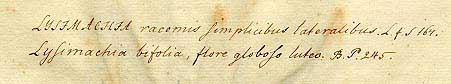 LYSIMACHIA racemis simplicibus lateralibus. L f S 161.
Lysimachia bifolia, flore globoso luteo. B. P. 245.